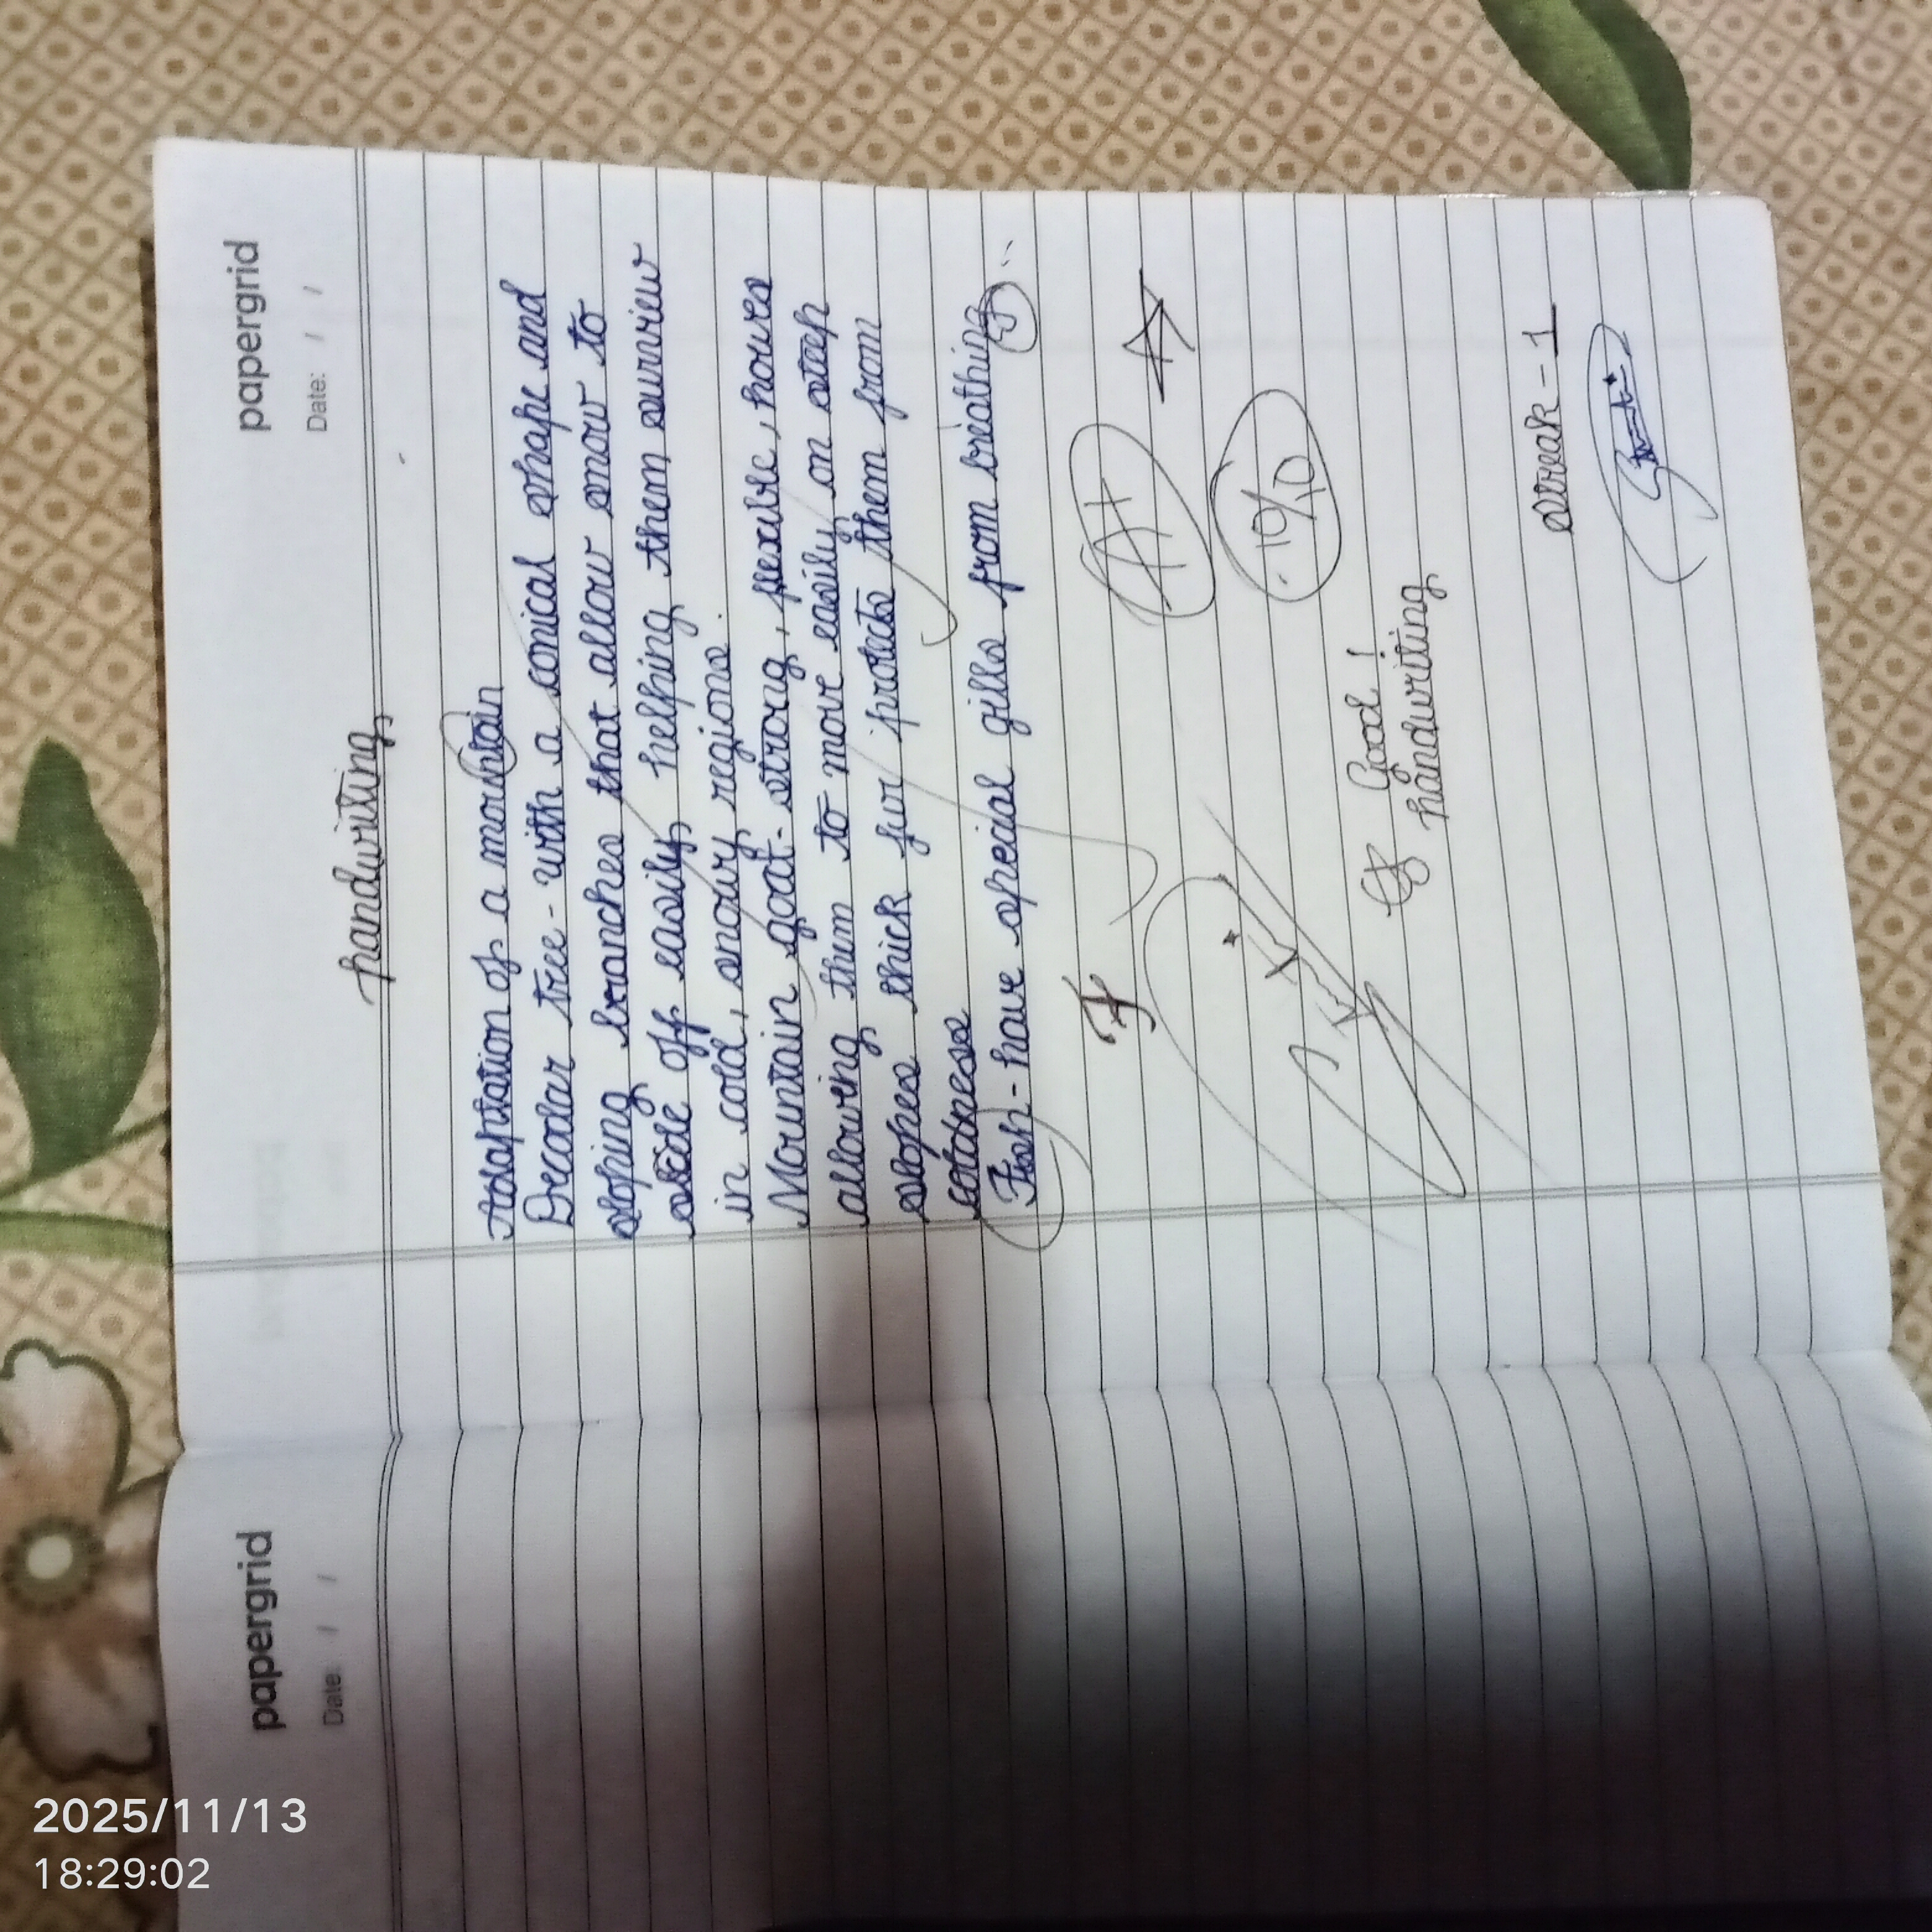 papergrid
Date: / /
handwriting
Adaptation of a mountain
Decodar tree - with a conical shape and
sloping branches that allow snow to
slide off easily, helping them surview
in cold, snowy regions.
Mountain goat - strong, flexible, hoves
allowing them to move easily on steep
slopes thick fur protects them from
coldness
Fish - have special gills from breathing
A+
10/10
Good!
handwriting
streak - 1
papergrid
Date: / /
2025/11/13
18:29:02